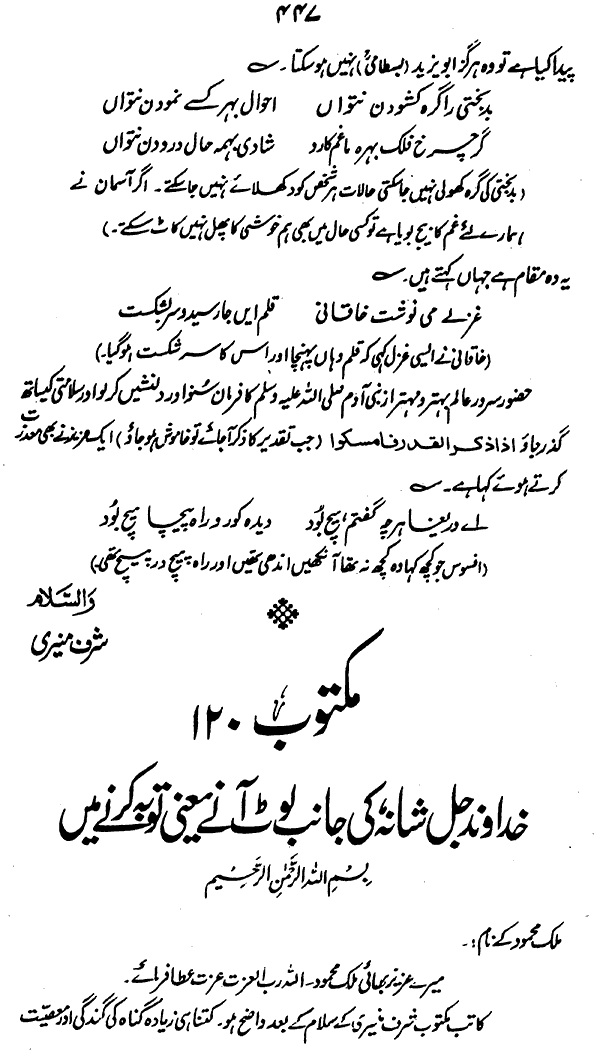 ۴۴۷
پیدا کیا ہے تو وہ ہرگز ابو یزید (بسطامیؒ) نہیں ہو سکتا۔ ؎
بدبختی را گرہ کشودن نتواں احوال بہر کسے نمودن نتواں
گر چرخ فلک بہرہ ما غم کارد شادی بہمہ حال درودن نتواں
(بدبختی کی گرہ کھولی نہیں جا سکتی حالات ہر شخص کو دکھلائے نہیں جا سکتے۔ اگر آسمان نے
ہمارے لئے غم کا بیج بویا ہے تو کسی حال میں بھی ہم خوشی کا پھل نہیں کاٹ سکتے۔)
یہ وہ مقام ہے جہاں کہتے ہیں۔ ؎
غزلے می نوشت خاقانی قلم ایں جا رسید و سر بشکست
(خاقانی نے ایسی غزل کہی کہ قلم وہاں پہنچا اور اس کا سر شکست ہو گیا۔)
حضور سرور عالم بہتر و مہتر از بنی آدم صلی اللہ علیہ وسلم کا فرمان سنو اور دلنشیں کر لو اور سلامتی کیساتھ
گذر جاؤ اذا ذکر القدر فامسکوا (جب تقدیر کا ذکر آجائے تو خاموش ہو جاؤ) ایک عزیز نے بھی معذرت
کرتے ہوئے کہا ہے۔ ؎
اے دریغا ہرچہ گفتم، ہیچ بُود دیدہ کور و راہ پیچا پیچ بُود
(افسوس جو کچھ کہا وہ کچھ نہ تھا آنکھیں اندھی تھیں اور راہ پیچ در پیچ تھی۔)
والسّلام
شرف منیری
مکتوب ۱۲۰
خداوند جل شانہٗ کی جانب لوٹ آنے یعنی توبہ کرنے میں
بِسْمِ اللہِ الرَّحْمٰنِ الرَّحِیْمِ
ملک محمود کے نام:۔
میرے عزیز بھائی ملک محمود۔ اللہ رب العزت عزت عطا فرمائے۔
کاتب مکتوب شرف منیری کے سلام کے بعد واضح ہو۔ کتنا ہی زیادہ گناہ کی گندگی اور معصیت